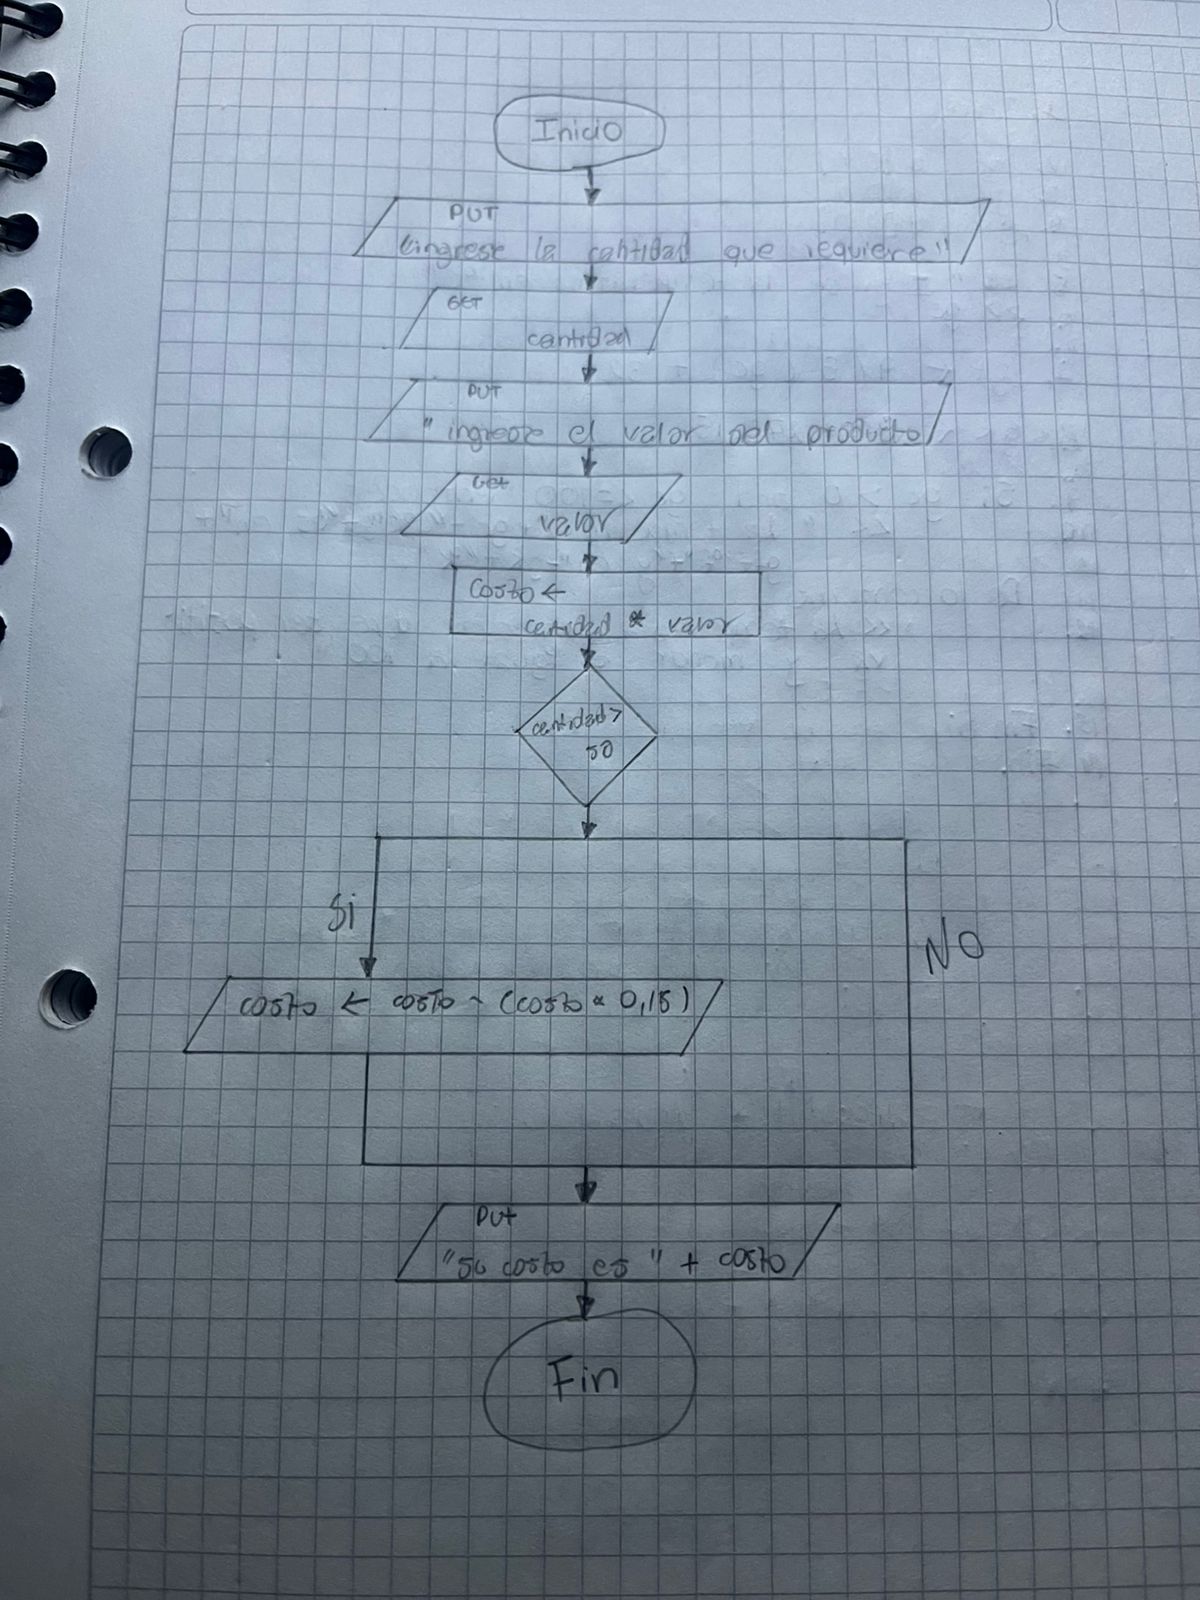 Inicio
PUT
"ingrese la cantidad que requiere"
GET
cantidad
PUT
"ingrese el valor del producto
Get
valor
Costo ←
cantidad * valor
cantidad >
50
Si
NO
costo ← costo - (costo * 0,15)
Put
"su costo es " + costo
Fin